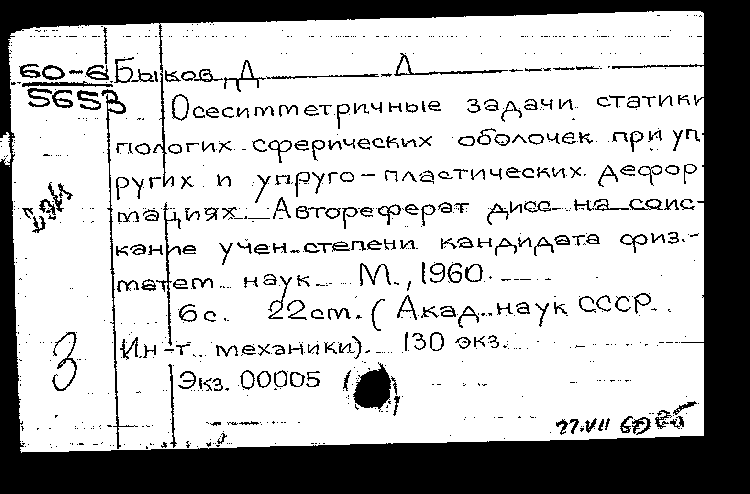 60-6 Быков, Д Л
5653
Осесимметричные задачи статики
пологих сферических оболочек при уп-
ругих и упруго-пластических дефор-
мациях. Автореферат дисс на соис-
кание учен. степени кандидата физ.-
матем. наук. М., 1960.
6 с. 22 см. (Акад. наук СССР.
Ин-т механики). 130 экз.
3
Экз. 00005
27.VII 60